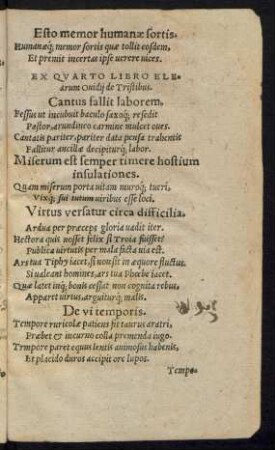 Esto memor humanæ sortis.
Humanæq; memor sortis quæ tollit eosdem,
Et premit incertas ipse uerere uices.
EX QVARTO LIBRO ELE-
arum Ouidij de Tristibus.
Cantus fallit laborem.
Fessus ut incubuit baculo saxoq; resedit
Pastor, arundineo carmine mulcet oues.
Cantatis pariter, pariter data pensa trahentis
Fallitur ancillæ decipiturq; labor.
Miserum est semper timere hostium
insultationes.
Quam miserum porta uitam muroq; tueri,
Vixq; sui tutum uiribus esse loci.
Virtus versatur circa difficilia.
Ardua per præceps gloria uadit iter.
Hectora quis nosset felix si Troia fuisset?
Publica uirtutis per mala facta uia est.
Ars tua Tiphy iacet, si non sit in æquore fluctus.
Si ualeant homines, ars tua Phœbe iacet.
Quæ latet inq; bonis cessat non cognita rebus,
Apparet uirtus, arguiturq; malis.
De vi temporis.
Tempore ruricolæ patiens fit taurus aratri,
Præbet & incuruo colla premenda iugo.
Tempore paret equus lentis animosus habenis,
Et placido duros accipit ore lupos.
Tempo-